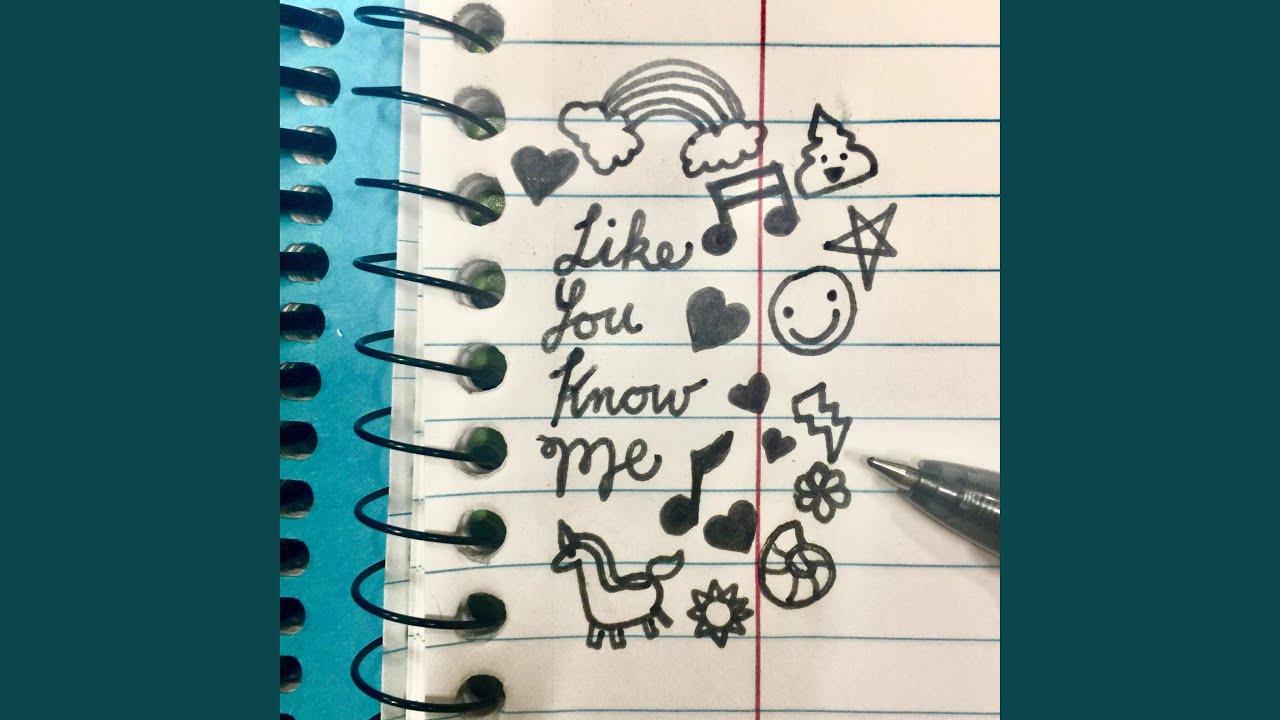 Like
You
Know
Me